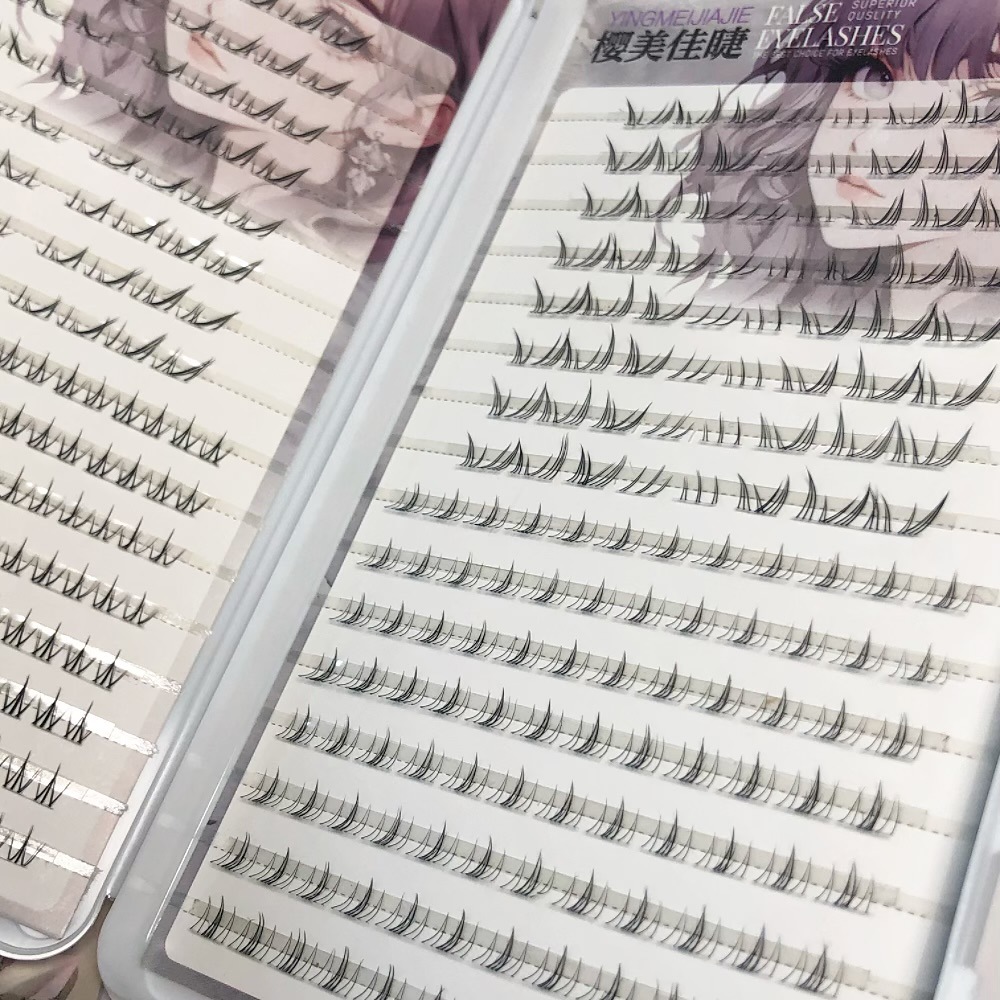 YINGMEIJIAJIE
樱美佳睫
FALSE
EYELASHES
SUPERIOR
QUSLITY
BEST CHOICE FOR EYELASHES